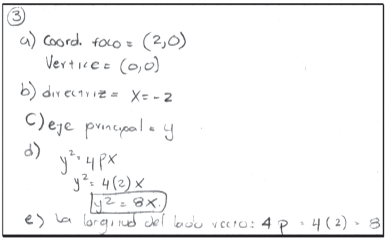 ③
a) Coord. foco = (2,0)
Vertice = (0,0)
b) directriz = x = -2
c) eje principal = y
d)
y² = 4px
y² = 4(2)x
y² = 8x.
e) La longitud del lado recto: 4p = 4(2) = 8